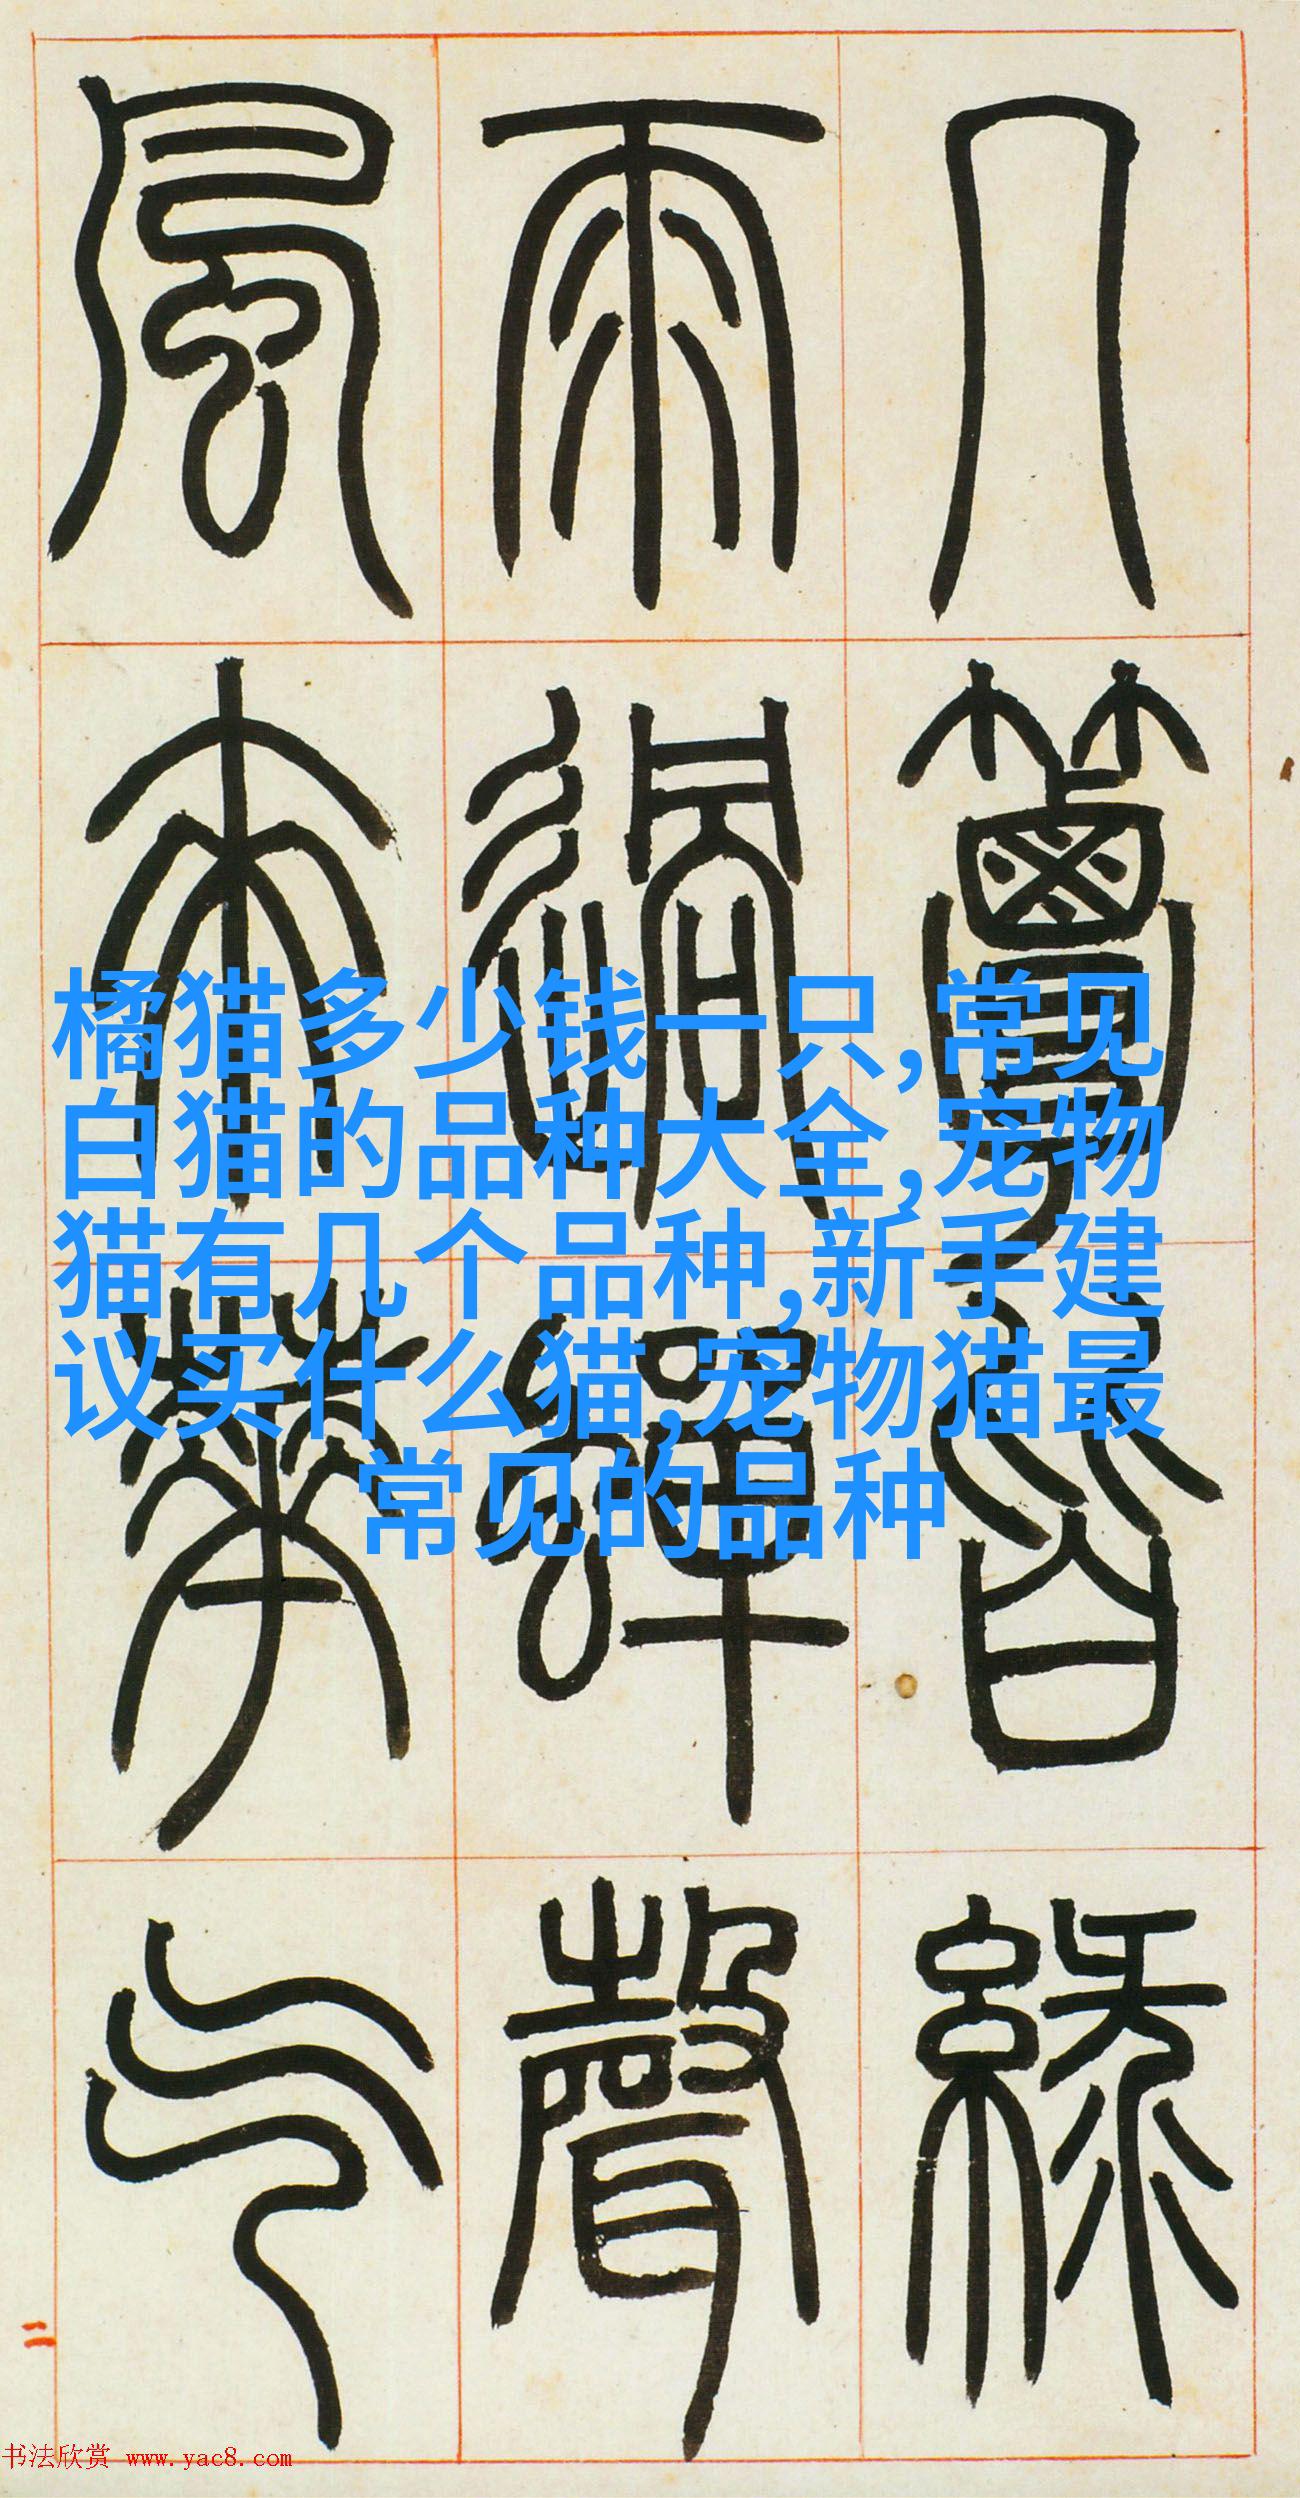 几簟皆綠
雨過蟬聲
風來華气
橘猫多少钱一只,常见
白猫的品种大全,宠物
猫有几个品种,新手建
议买什么猫,宠物猫最
常见的品种
二
书法欣赏 www.yac8.com